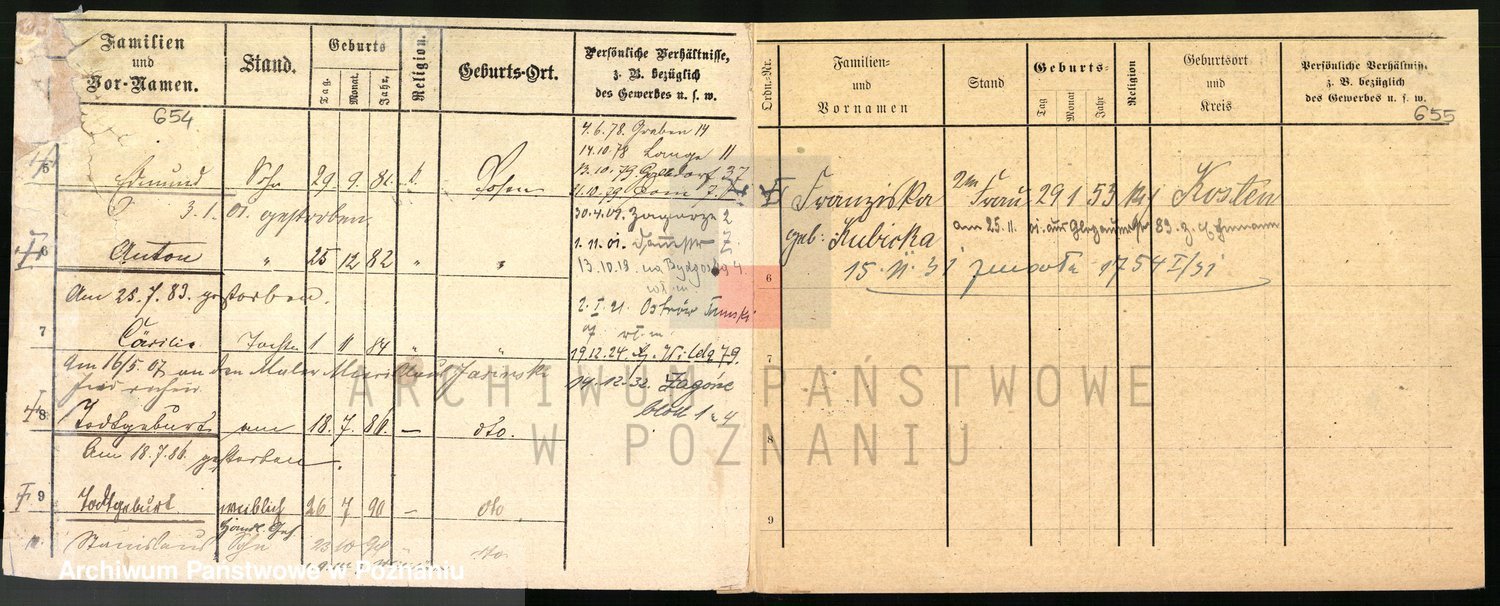 Familien
und
Vor-Namen.
Stand.
Geburts
Tag.
Monat.
Jahr.
Religion.
Geburts-Ort.
Persönliche Verhältnisse,
z. B. bezüglich
des Gewerbes u. s. w.
654
4.6.78. Graben 14
14.10.78 Lange 11
5 Edmund Sohn 29. 9. 81. k Posen
3.1.01. gestorben.
30.4.01. Zagorze 2
6 Anton " 25 12 82 " "
1.11.01.
13.10.19 na Bydgoską 4.
Am 25.7.83. gestorben.
2.I.21. Ostrów Tumski
7 Cäcilie Tochter 1 11 84 " "
19.12.24. G. Wilda 79.
Am 16/5.07 an den Maler Jasinski
19.12.32. Zagórze
8 Todtgeburt am 18. 7. 86. — dto.
Am 18.7.86. gestorben.
9 Todtgeburt weiblich 26 7 90 — dto
10. Stanislaus Sohn 23 10 94 " dto.
Ordn.-Nr.
Familien-
und
Vornamen
Stand
Geburts-
Tag
Monat
Jahr
Religion
Geburtsort
und
Kreis
Persönliche Verhältnisse
z. B. bezüglich
des Gewerbes u. s. w.
655
Franziska Frau 29 1 53 Kosten
geb. Kubicka am 25. 11. 01. aus 83. z. Ehemann
6 15. II. 31 zmarła 1754 I/31
7
8
9
ARCHIWUM PAŃSTWOWE
W POZNANIU
Archiwum Państwowe w Poznaniu